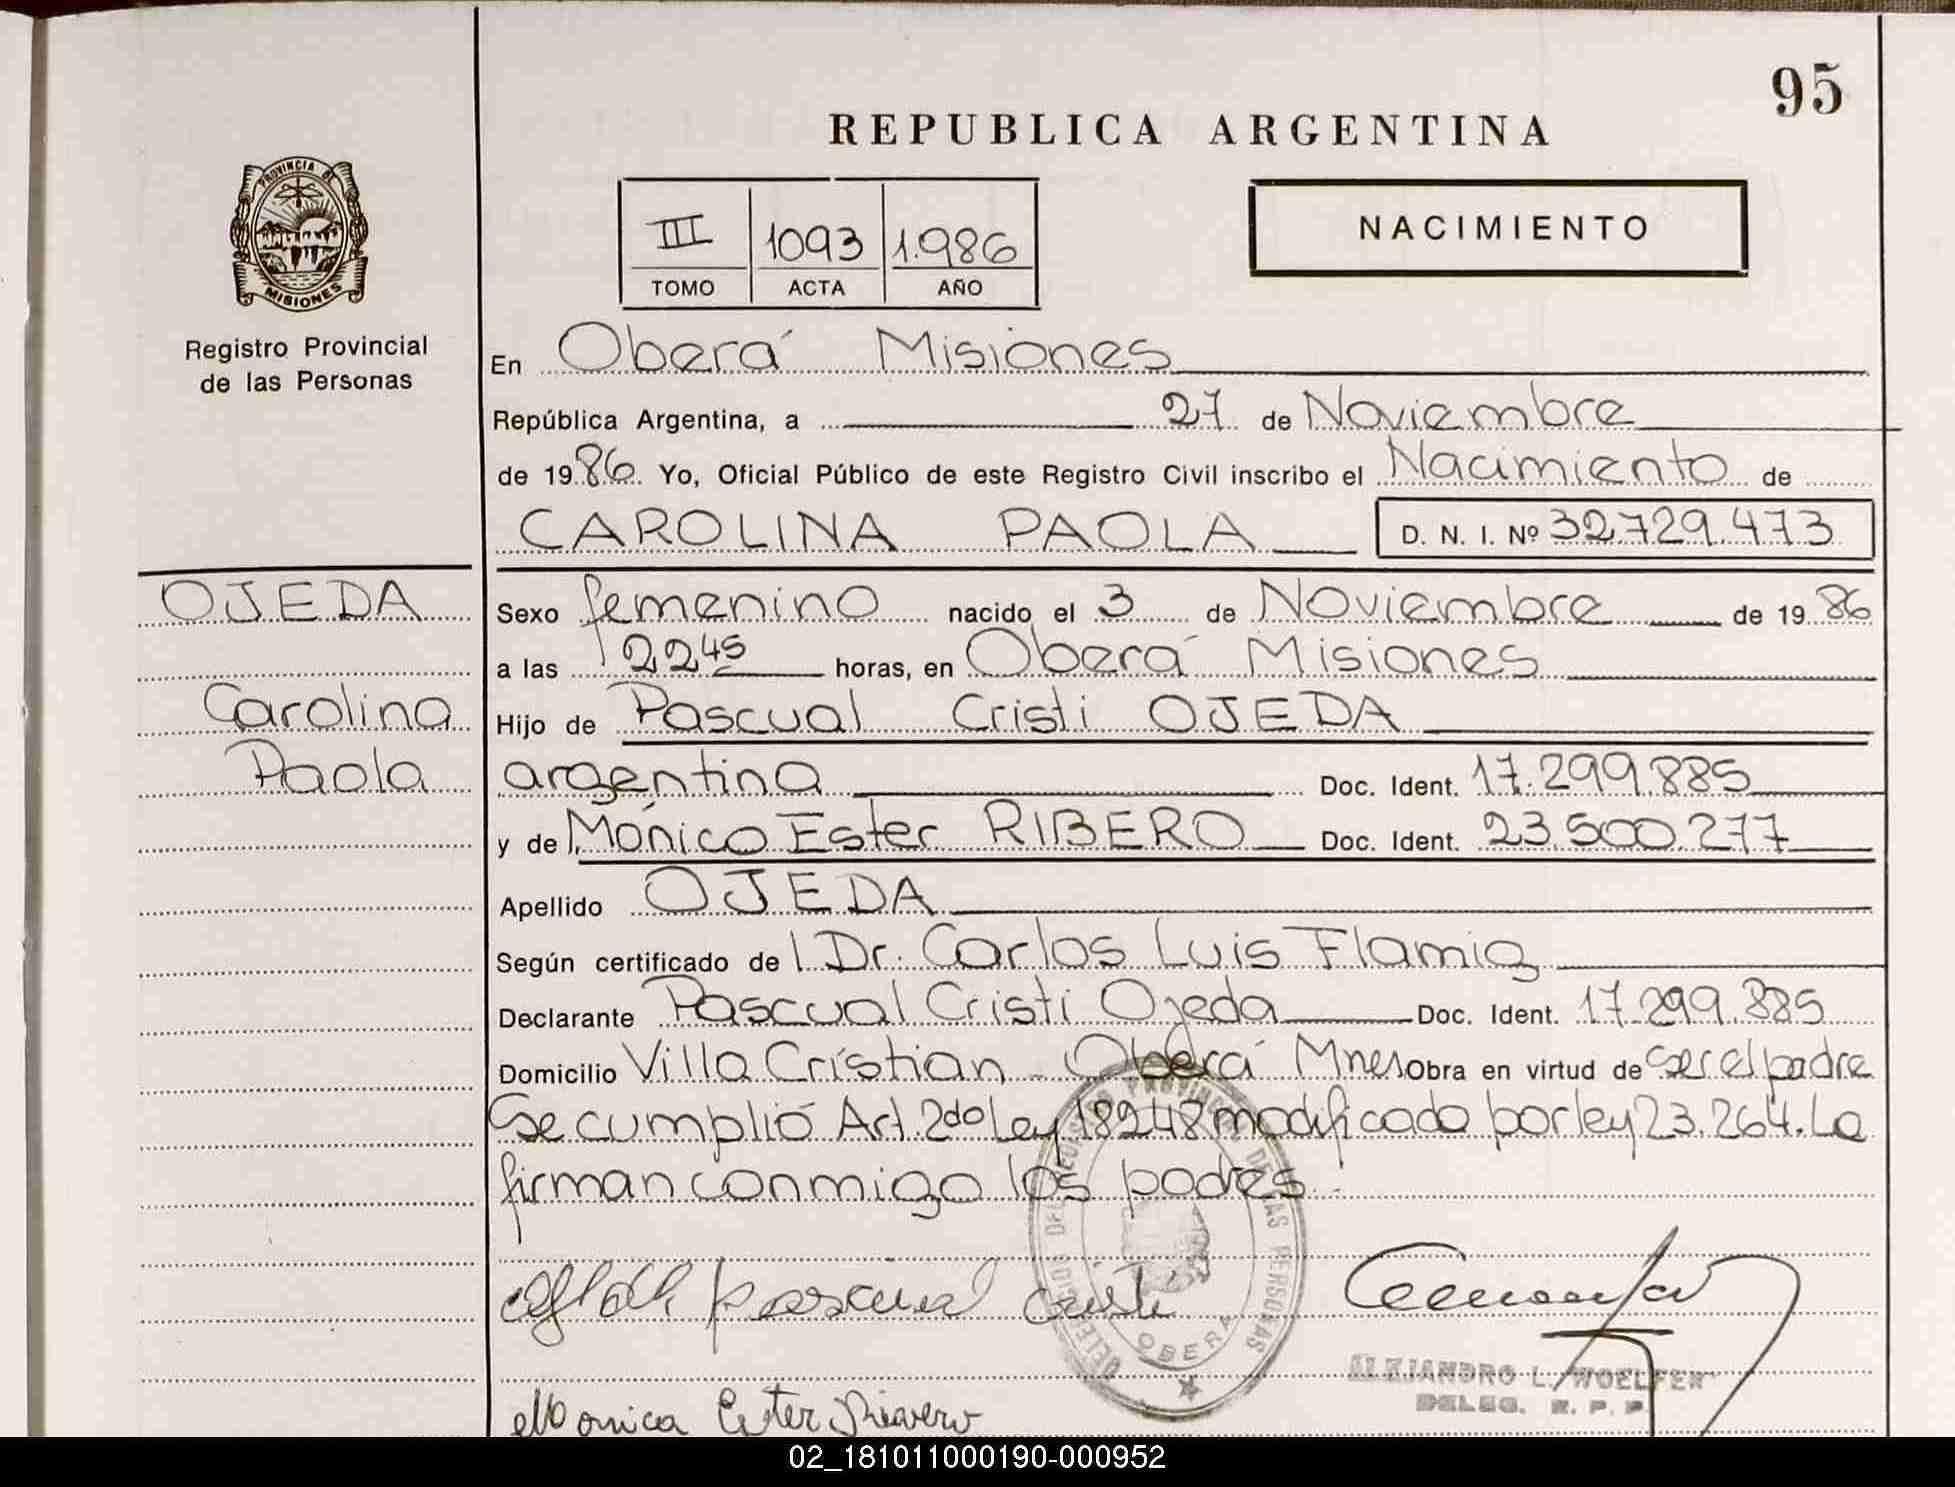 95
REPUBLICA ARGENTINA
PROVINCIA DE
MISIONES
Registro Provincial
de las Personas
III 1093 1.986
TOMO ACTA AÑO
NACIMIENTO
En Oberá Misiones
República Argentina, a 27 de Noviembre
de 1986. Yo, Oficial Público de este Registro Civil inscribo el Nacimiento de
CAROLINA PAOLA D. N. I. Nº 32.729.473
OJEDA
Carolina
Paola
Sexo femenino nacido el 3 de Noviembre de 1986
a las 22 45 horas, en Oberá Misiones
Hijo de Pascual Cristi OJEDA
argentina Doc. Ident. 17.299.885
y de Mónica Ester RIBERO Doc. Ident. 23.500.277
Apellido OJEDA
Según certificado de l Dr. Carlos Luis Flamig
Declarante Pascual Cristi Ojeda Doc. Ident. 17.299.885
Domicilio Villa Cristian - Oberá Mnes Obra en virtud de ser el padre
Se cumplió Art. 2do Ley 18248 modificada por ley 23.264. La
firman conmigo los padres
Pascual Cristi
OBERA
ALEJANDRO L. WOELFERT
DELEG. R. P. P.
Monica Ester Rivero
02_181011000190-000952